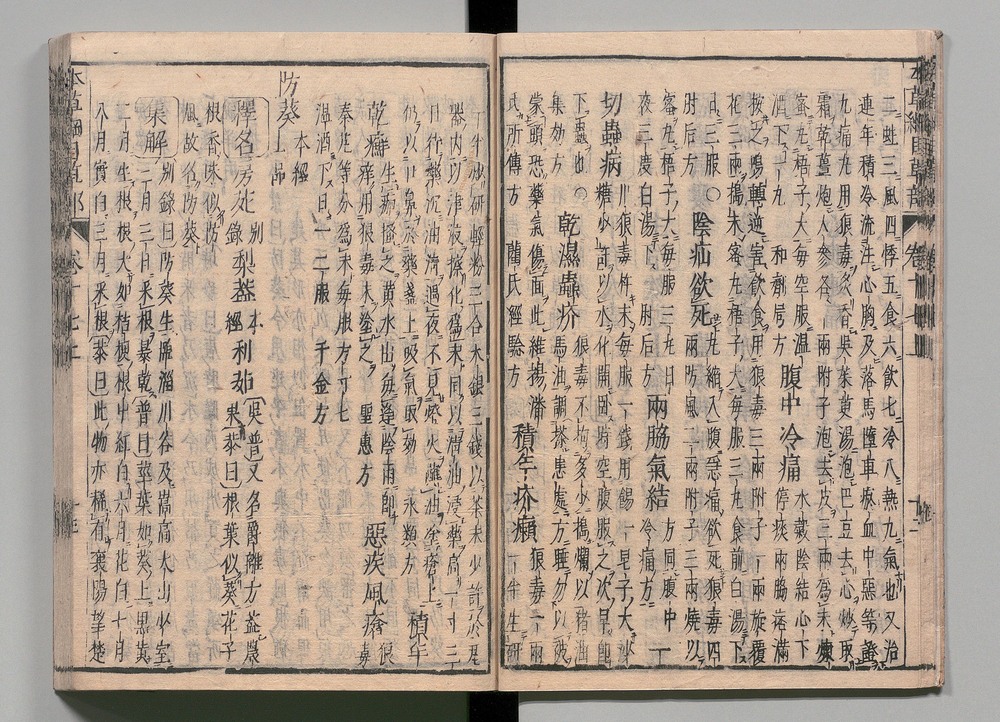 二蚘三風四悸五食六飲七冷八熱九氣也又治
連年積冷流注心胸及落馬墮車瘀血中惡等證
九痛丸用狼毒炙香吳茱萸湯泡巴豆去心炒取
霜乾薑炮人參各一兩附子泡去皮三兩爲末煉
蜜丸梧子大每空服溫酒下一丸 和劑局方 腹中冷痛 水穀陰結心下停痰兩脇痞滿
按之鳴轉逆害飲食用狼毒三兩附子一兩旋覆
花三兩擣末蜜丸梧子大每服三丸食前白湯下
日三服○ 肘后方 陰疝欲死 丸縮入腹急痛欲死狼毒四兩防風二兩附子三兩燒以
蜜丸梧子大每服三丸日夜三度白湯下 肘后方 兩脇氣結 方同腹中冷痛方
切蟲病 川狼毒杵末每服一錢用餳一皂子大沙糖少許以水化開臥時空腹服之次早即
下蟲也○ 集効方 乾濕蟲疥 狼毒不拘多少擣爛以猪油馬油調搽患處方睡勿以被
蒙頭恐藥氣傷面此維揚潘氏所傳方 藺氏經驗方 積年疥癩 狼毒一兩一半生研
一半炒研輕粉三合水銀三錢以茶末少許於瓦
器内以津液擦化爲末同以清油浸藥高一寸三
日待藥沉油清遇夜不見燈火蘸油塗瘡上
仍以口鼻於藥盞上吸氣取効 永類方 積年
乾癬 生痂搔之黃水出每逢陰雨即痒用狼毒末塗之 聖惠方 惡疾風瘡 狼毒
秦艽等分爲末每服方寸匕
溫酒下日一二服 千金方
防葵 本經上品
釋名 房苑 別錄 梨蓋 本經 利茹 吳普又名爵離方蓋農果恭曰根葉似葵花子
根香味似防風故名防葵
集解 別錄曰防葵生臨淄川谷及嵩高太山少室
三月三日采根暴乾普曰莖葉如葵上黑黃
二月生根根大如桔梗根中紅白六月花白七月
八月實白三月采根恭曰此物亦稀有襄陽望楚